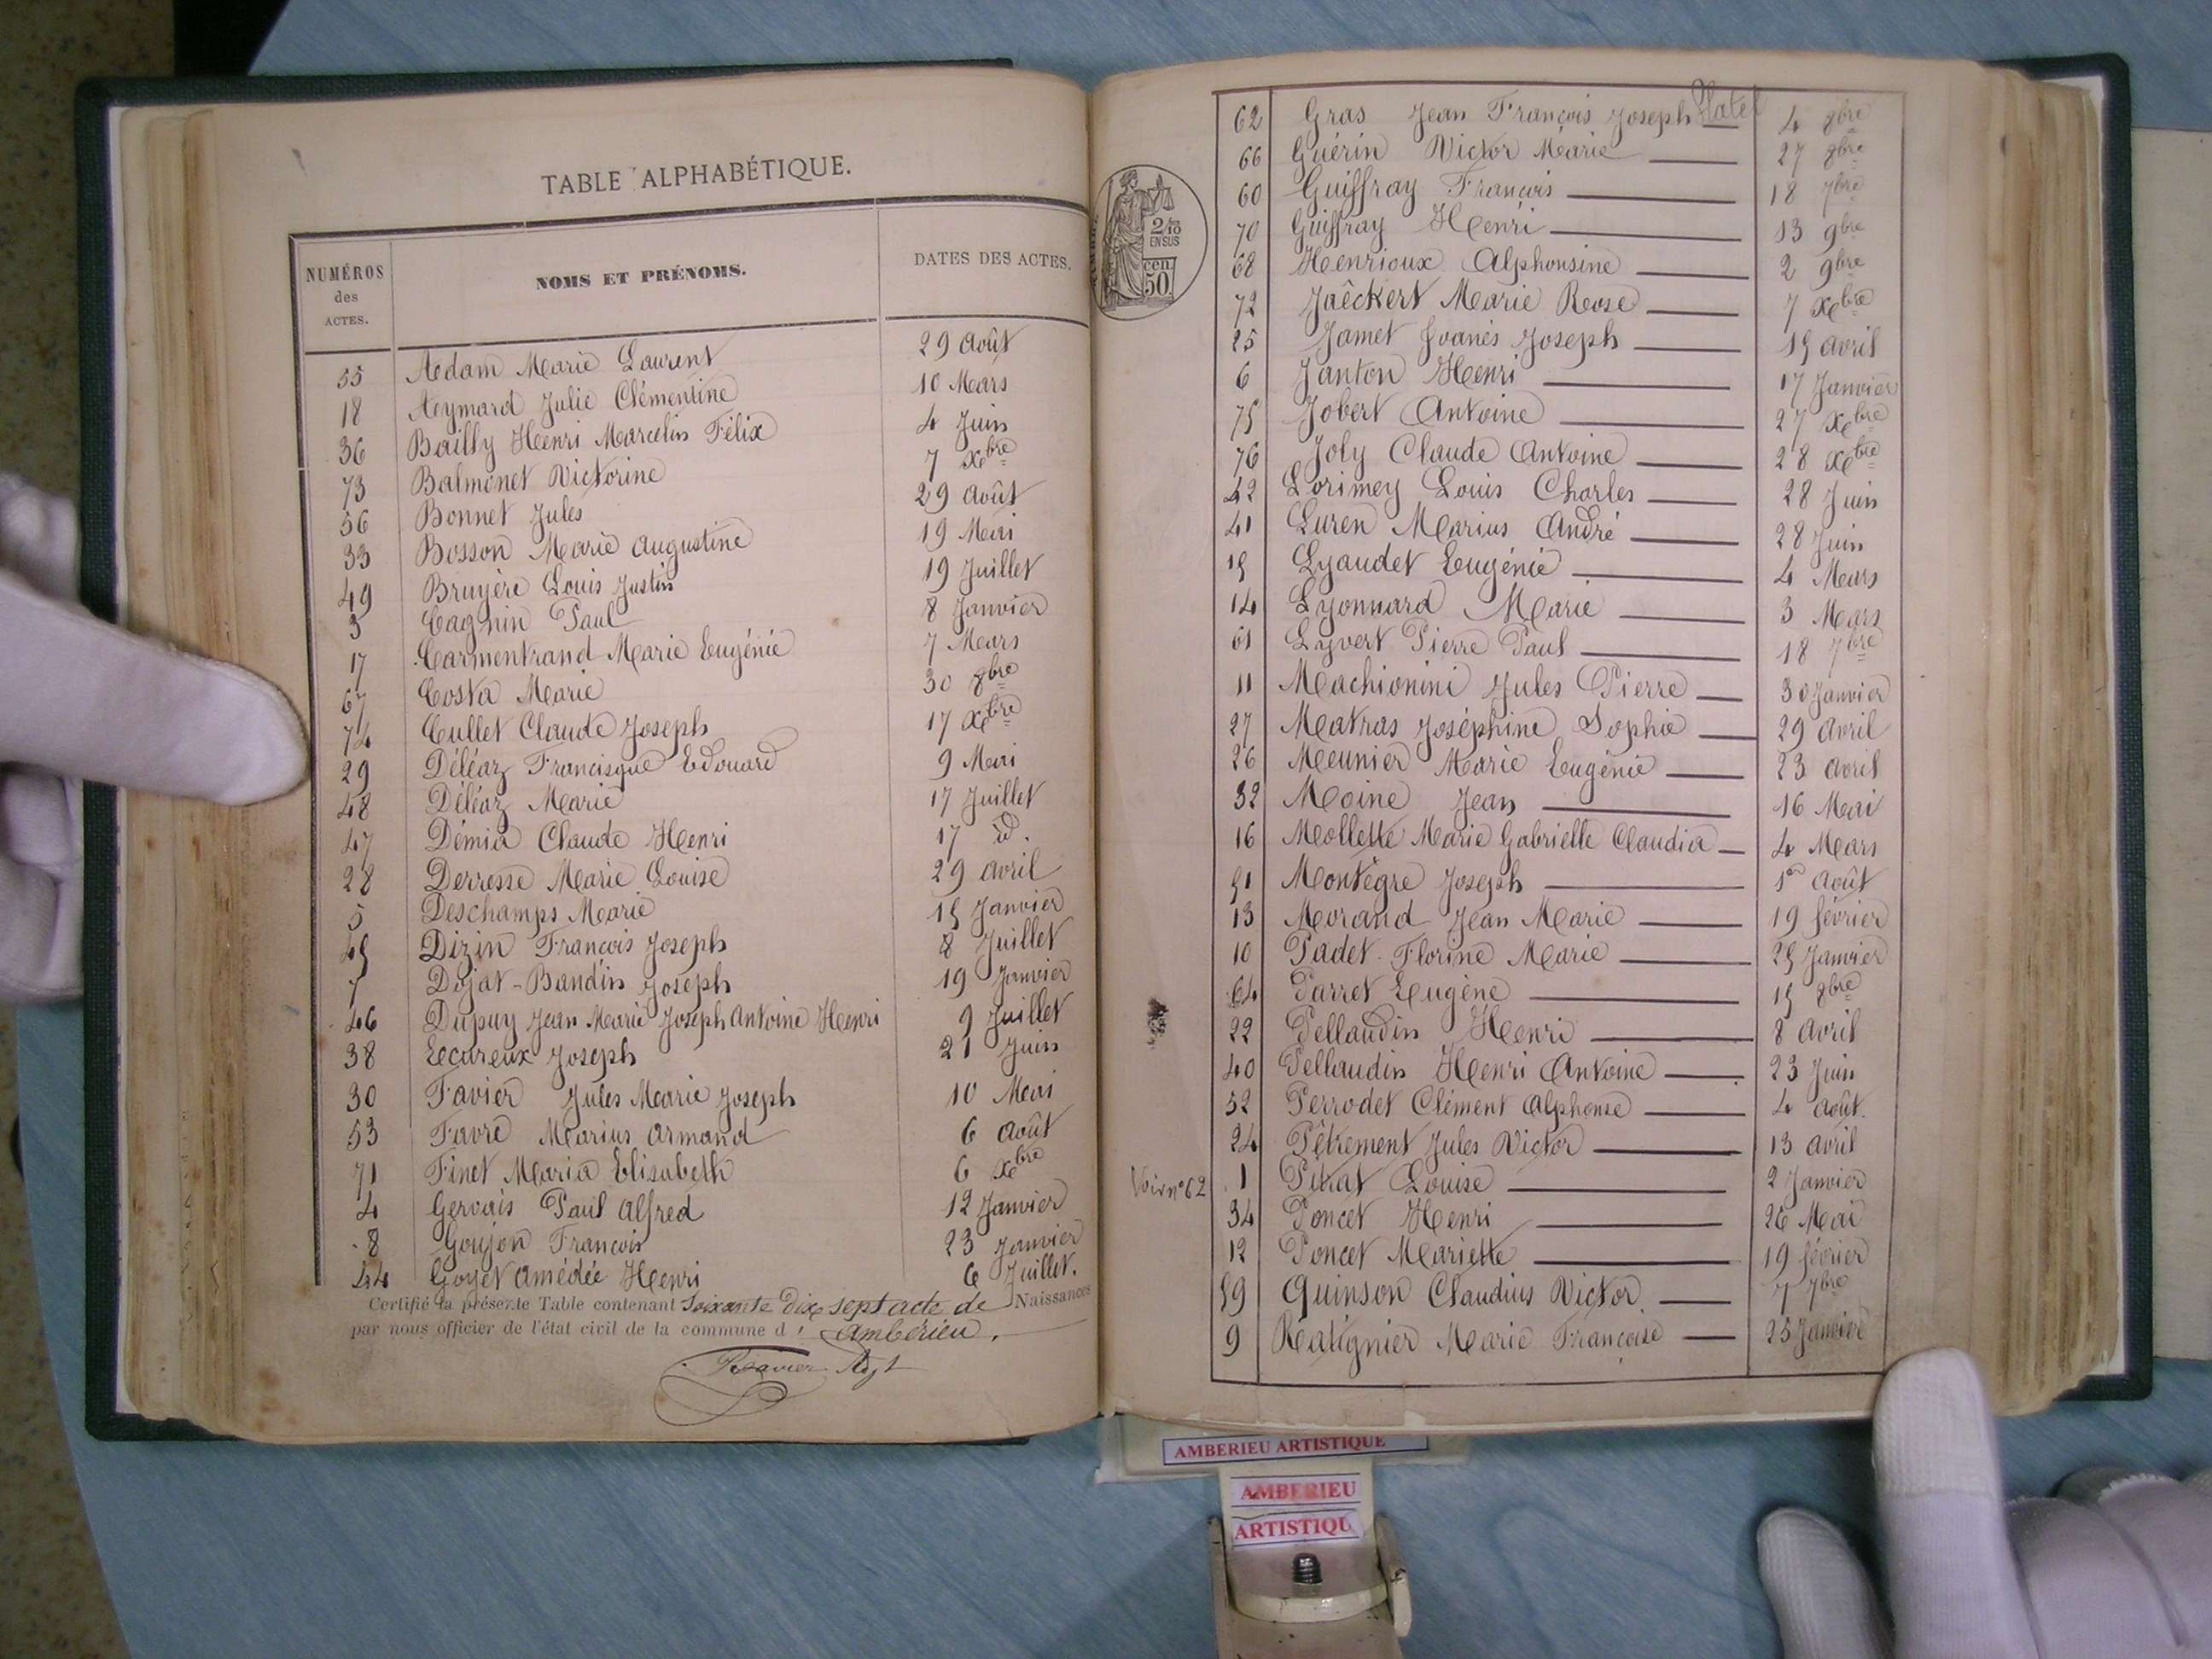 TABLE ALPHABÉTIQUE.
NUMÉROS des ACTES. NOMS ET PRÉNOMS. DATES DES ACTES.
55 Adam Marie Laurent 29 Août
18 Aymard Julie Clémentine 10 Mars
36 Bailly Henri Marcelin Félix 4 Juin
73 Balmonet Victorine 7 Xbre
56 Bonnet Jules 29 Août
33 Bosson Marie Augustine 19 Mai
49 Bruyère Louis Justin 19 Juillet
3 Cagnin Paul 8 Janvier
17 Carmentrand Marie Eugénie 7 Mars
67 Costa Marie 30 8bre
74 Cullet Claude Joseph 17 Xbre
29 Déléaz Francisque Edouard 9 Mai
48 Déléaz Marie 17 Juillet
47 Démia Claude Henri 17 id.
28 Derresse Marie Louise 29 Avril
5 Deschamps Marie 15 Janvier
45 Dizin François Joseph 8 Juillet
7 Dojat-Bandin Joseph 19 Janvier
46 Dupuy Jean Marie Joseph Antoine Henri 9 Juillet
38 Ecureux Joseph 21 Juin
30 Favier Jules Marie Joseph 10 Mai
53 Favre Marius Armand 6 Août
71 Finet Maria Elisabeth 6 Xbre
4 Gervais Paul Alfred 12 Janvier
8 Goujon François 23 Janvier
44 Goyet Amédée Henri 6 Juillet.
Certifié la présente Table contenant soixante dix sept acte de Naissances
par nous officier de l'état civil de la commune d'Ambérieu.
Ravier Adjt
2/10 EN SUS
50 cen.
62 Gras Jean François Joseph Platel 4 8bre
66 Guérin Victor Marie 27 8bre
60 Guiffray François 18 7bre
70 Guiffray Henri 13 9bre
68 Henrioux Alphonsine 2 9bre
72 Jaêckert Marie Rose 7 Xbre
25 Jamet Joanès Joseph 15 Avril
6 Janton Henri 17 Janvier
75 Jobert Antoine 27 Xbre
76 Joly Claude Antoine 28 Xbre
42 Lorimey Louis Charles 28 Juin
41 Luren Marius André 28 Juin
15 Lyaudet Eugénie 4 Mars
14 Lyonnard Marie 3 Mars
61 Lyvert Pierre Paul 18 7bre
11 Machionini Jules Pierre 30 Janvier
27 Matras Joséphine Sophie 29 Avril
26 Meunier Marie Eugénie 23 Avril
32 Moine Jean 16 Mai
16 Mollette Marie Gabrielle Claudia 4 Mars
51 Montègre Joseph 1er Août
13 Morand Jean Marie 19 février
10 Padet Florine Marie 25 Janvier
64 Parret Eugène 15 8bre
22 Pellaudin Henri 8 Avril
40 Pellaudin Henri Antoine 23 Juin
52 Perrodet Clément Alphonse 4 Août.
24 Pêtrement Jules Victor 13 Avril
Voir n°62 1 Pitrat Louise 2 Janvier
34 Poncet Henri 26 Mai
12 Poncet Mariette 19 février
59 Quinson Claudius Victor 7 7bre
9 Ratignier Marie Françoise 25 Janvier
AMBERIEU ARTISTIQUE
AMBERIEU
ARTISTIQU